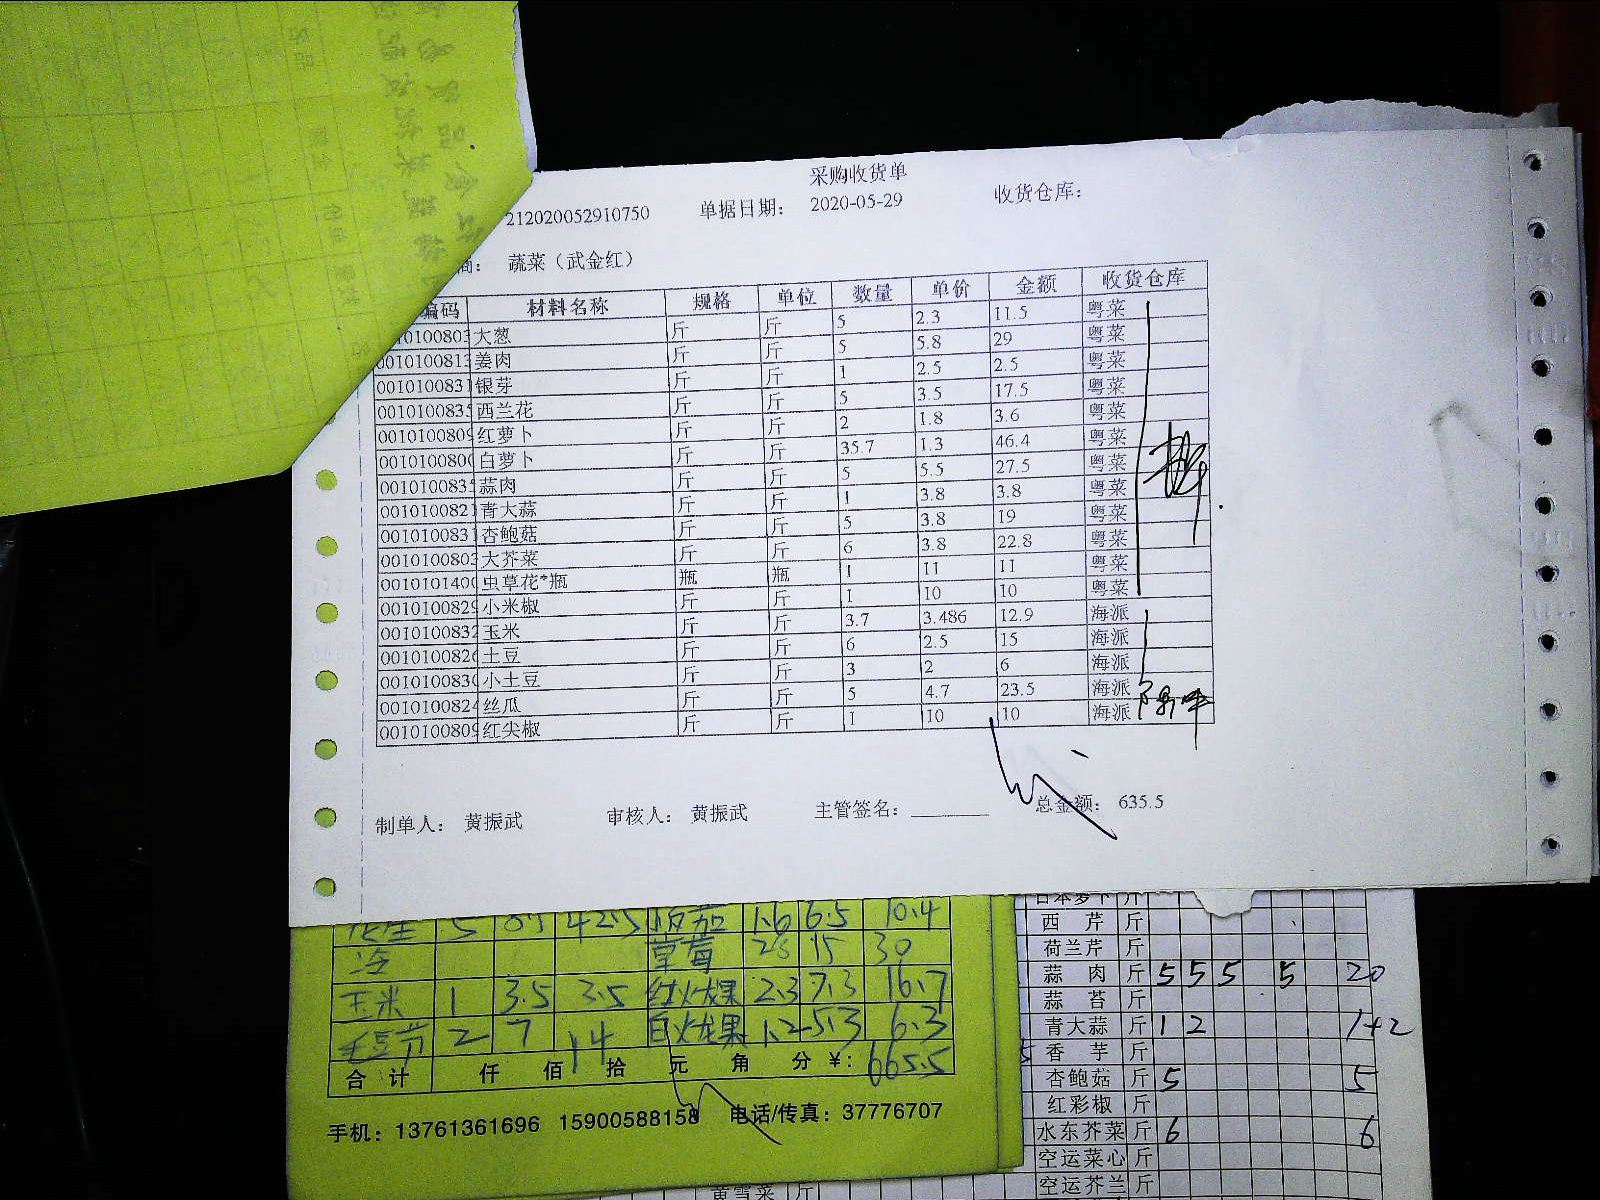 采购收货单
212020052910750 单据日期： 2020-05-29 收货仓库：
商： 蔬菜（武金红）
编码 材料名称 规格 单位 数量 单价 金额 收货仓库
0010100803 大葱 斤 斤 5 2.3 11.5 粤菜
0010100813 姜肉 斤 斤 5 5.8 29 粤菜
0010100831 银芽 斤 斤 1 2.5 2.5 粤菜
0010100835 西兰花 斤 斤 5 3.5 17.5 粤菜
0010100809 红萝卜 斤 斤 2 1.8 3.6 粤菜
0010100800 白萝卜 斤 斤 35.7 1.3 46.4 粤菜
0010100835 蒜肉 斤 斤 5 5.5 27.5 粤菜
0010100821 青大蒜 斤 斤 1 3.8 3.8 粤菜
0010100831 杏鲍菇 斤 斤 5 3.8 19 粤菜
0010100803 大芥菜 斤 斤 6 3.8 22.8 粤菜
0010101400 虫草花*瓶 瓶 瓶 1 11 11 粤菜
0010100829 小米椒 斤 斤 1 10 10 粤菜
0010100832 玉米 斤 斤 3.7 3.486 12.9 海派
0010100826 土豆 斤 斤 6 2.5 15 海派
0010100830 小土豆 斤 斤 3 2 6 海派
0010100824 丝瓜 斤 斤 5 4.7 23.5 海派
0010100809 红尖椒 斤 斤 1 10 10 海派
制单人： 黄振武 审核人： 黄振武 主管签名： 总金额： 635.5
5 8.5 42.5 1.6 6.5 10.4
草莓 15 30
玉米 1 3.5 3.5 红火龙果 2.3 7.3 16.7
毛豆节 2 7 14 白火龙果 1.2 5.3 6.3
合计 仟 佰 拾 元 角 分 ¥： 665.5
手机：13761361696 15900588158 电话/传真：37776707
日本萝卜 斤
西芹 斤
荷兰芹 斤
蒜肉 斤 5 5 5 5 20
蒜苔 斤
青大蒜 斤 1 2 1+2
香芋 斤
杏鲍菇 斤 5 5
红彩椒 斤
水东芥菜 斤 6 6
空运菜心 斤
空运芥兰 斤
黄雪菜 斤